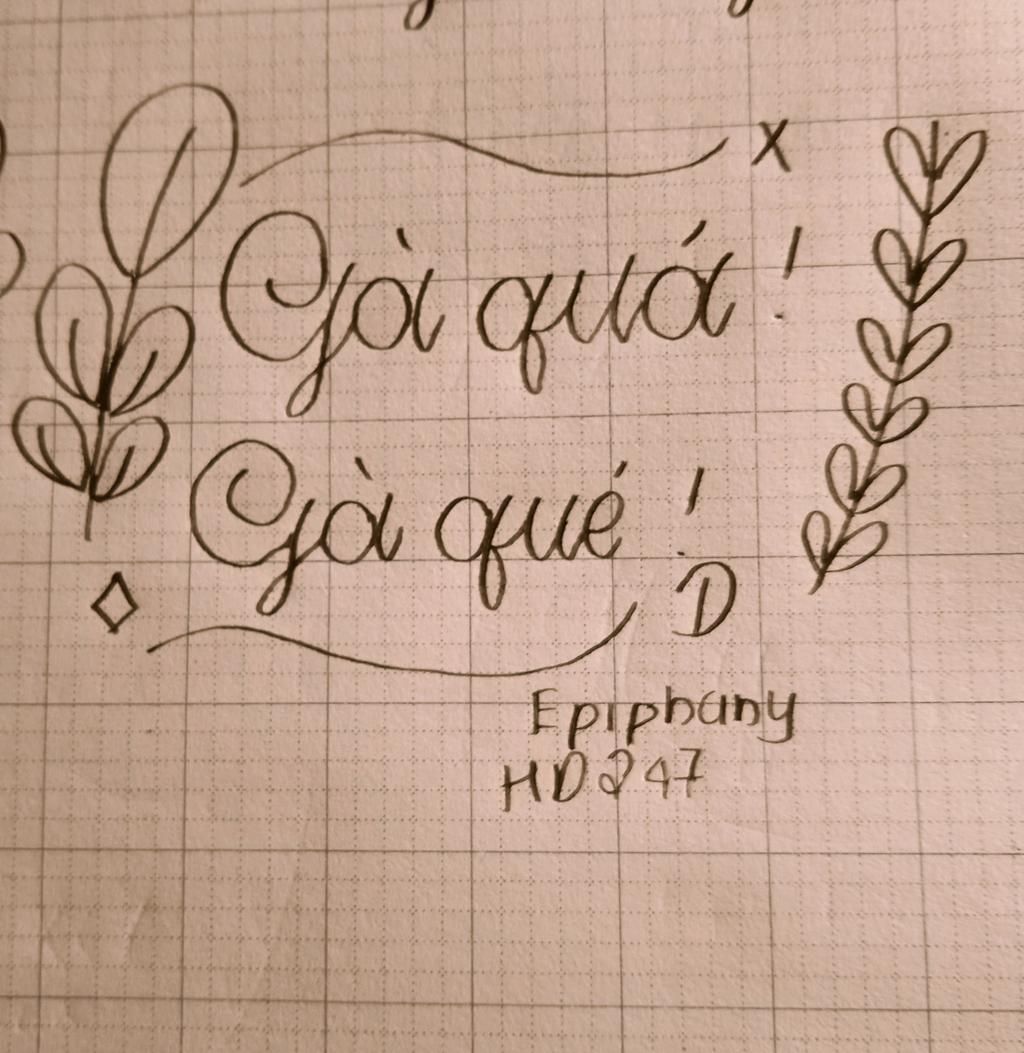 X
Gà quá!
Gà qué!
D
Epiphany
HD247